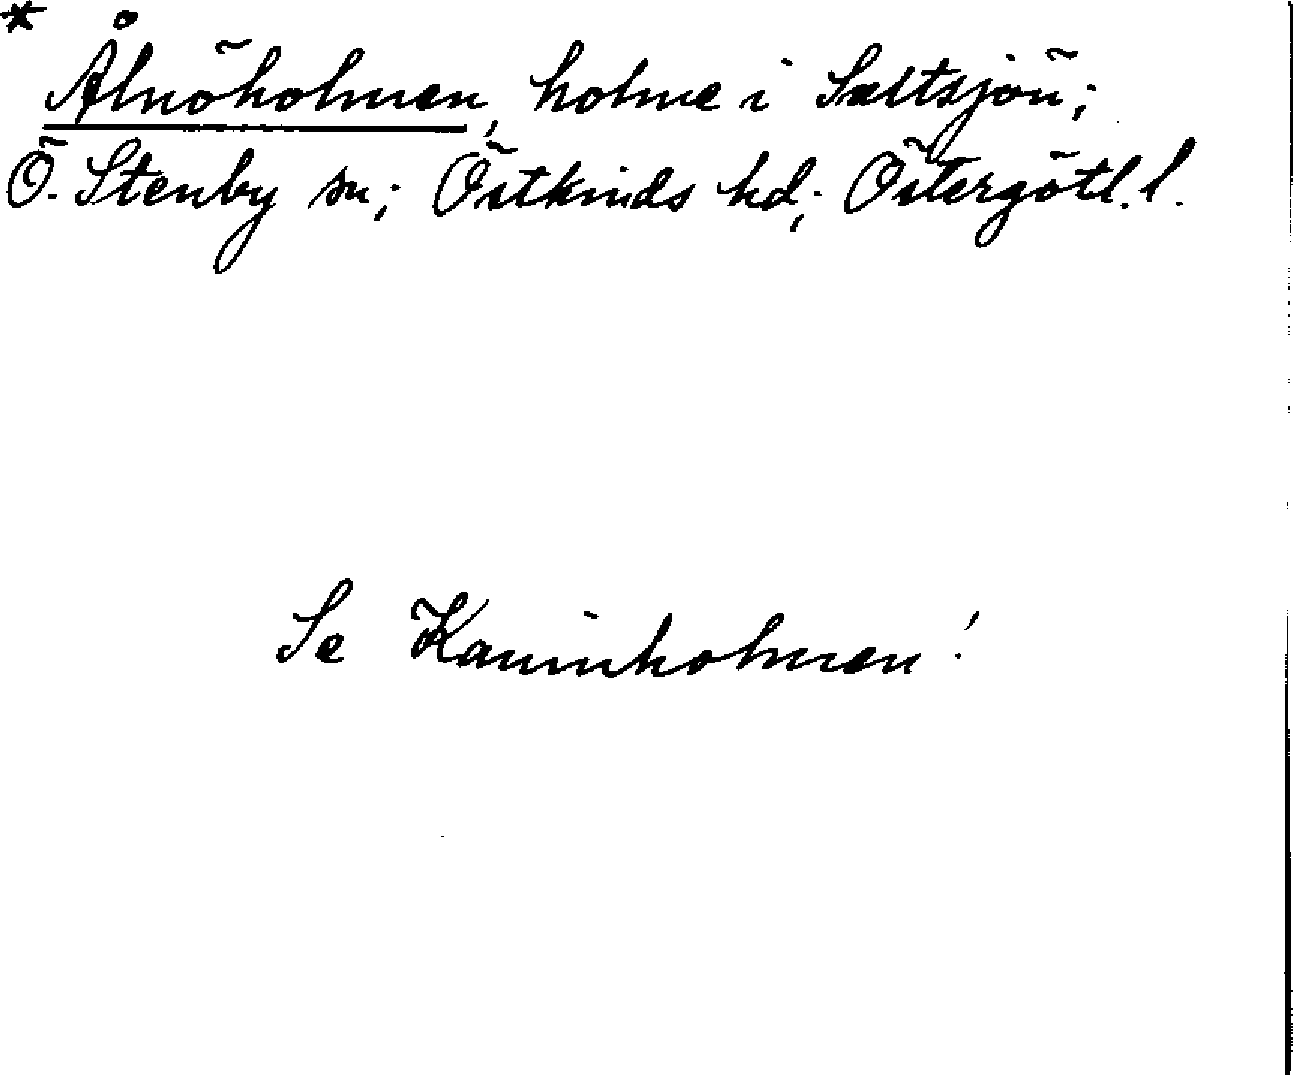 * Ålnöholmen, holme i Saltsjön;
Ö. Stenby sn; Östkinds hd; Östergötl. l.
Se Kaninholmen!